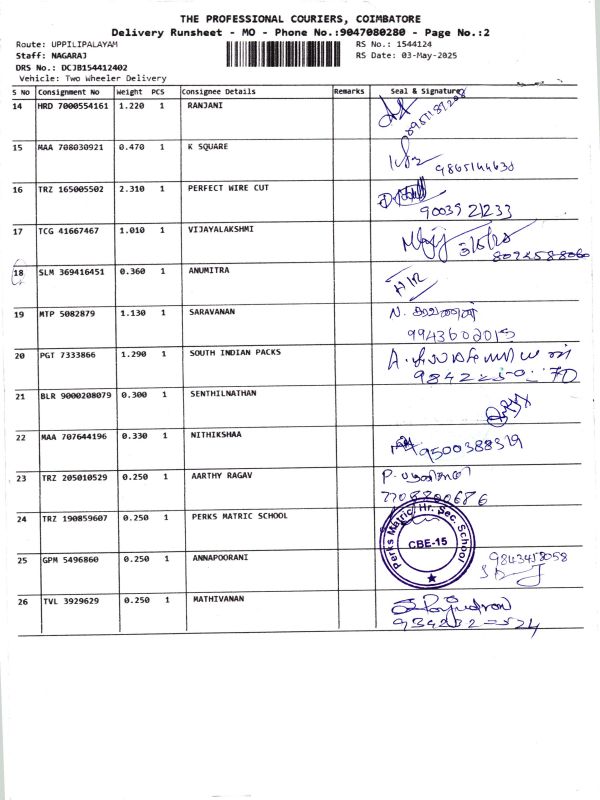 THE PROFESSIONAL COURIERS, COIMBATORE
Delivery Runsheet - MO - Phone No.:9047080280 - Page No.:2
Route: UPPILIPALAYAM RS No.: 1544124
Staff: NAGARAJ RS Date: 03-May-2025
DRS No.: DCJB154412402
Vehicle: Two Wheeler Delivery
S No Consignment No Weight PCS Consignee Details Remarks Seal & Signature
14 HRD 7000554161 1.220 1 RANJANI
15 MAA 708030921 0.470 1 K SQUARE
16 TRZ 165005502 2.310 1 PERFECT WIRE CUT
9003921233
17 TCG 41667467 1.010 1 VIJAYALAKSHMI
3/5/25
18 SLM 369416451 0.360 1 ANUMITRA
19 MTP 5082879 1.130 1 SARAVANAN
N. சரவணன்
20 PGT 7333866 1.290 1 SOUTH INDIAN PACKS
21 BLR 9000208079 0.300 1 SENTHILNATHAN
22 MAA 707644196 0.330 1 NITHIKSHAA
9500388319
23 TRZ 205010529 0.250 1 AARTHY RAGAV
7708200686
24 TRZ 190859607 0.250 1 PERKS MATRIC SCHOOL
Perks Matric Hr. Sec. School
CBE-15
25 GPM 5496860 0.250 1 ANNAPOORANI
26 TVL 3929629 0.250 1 MATHIVANAN